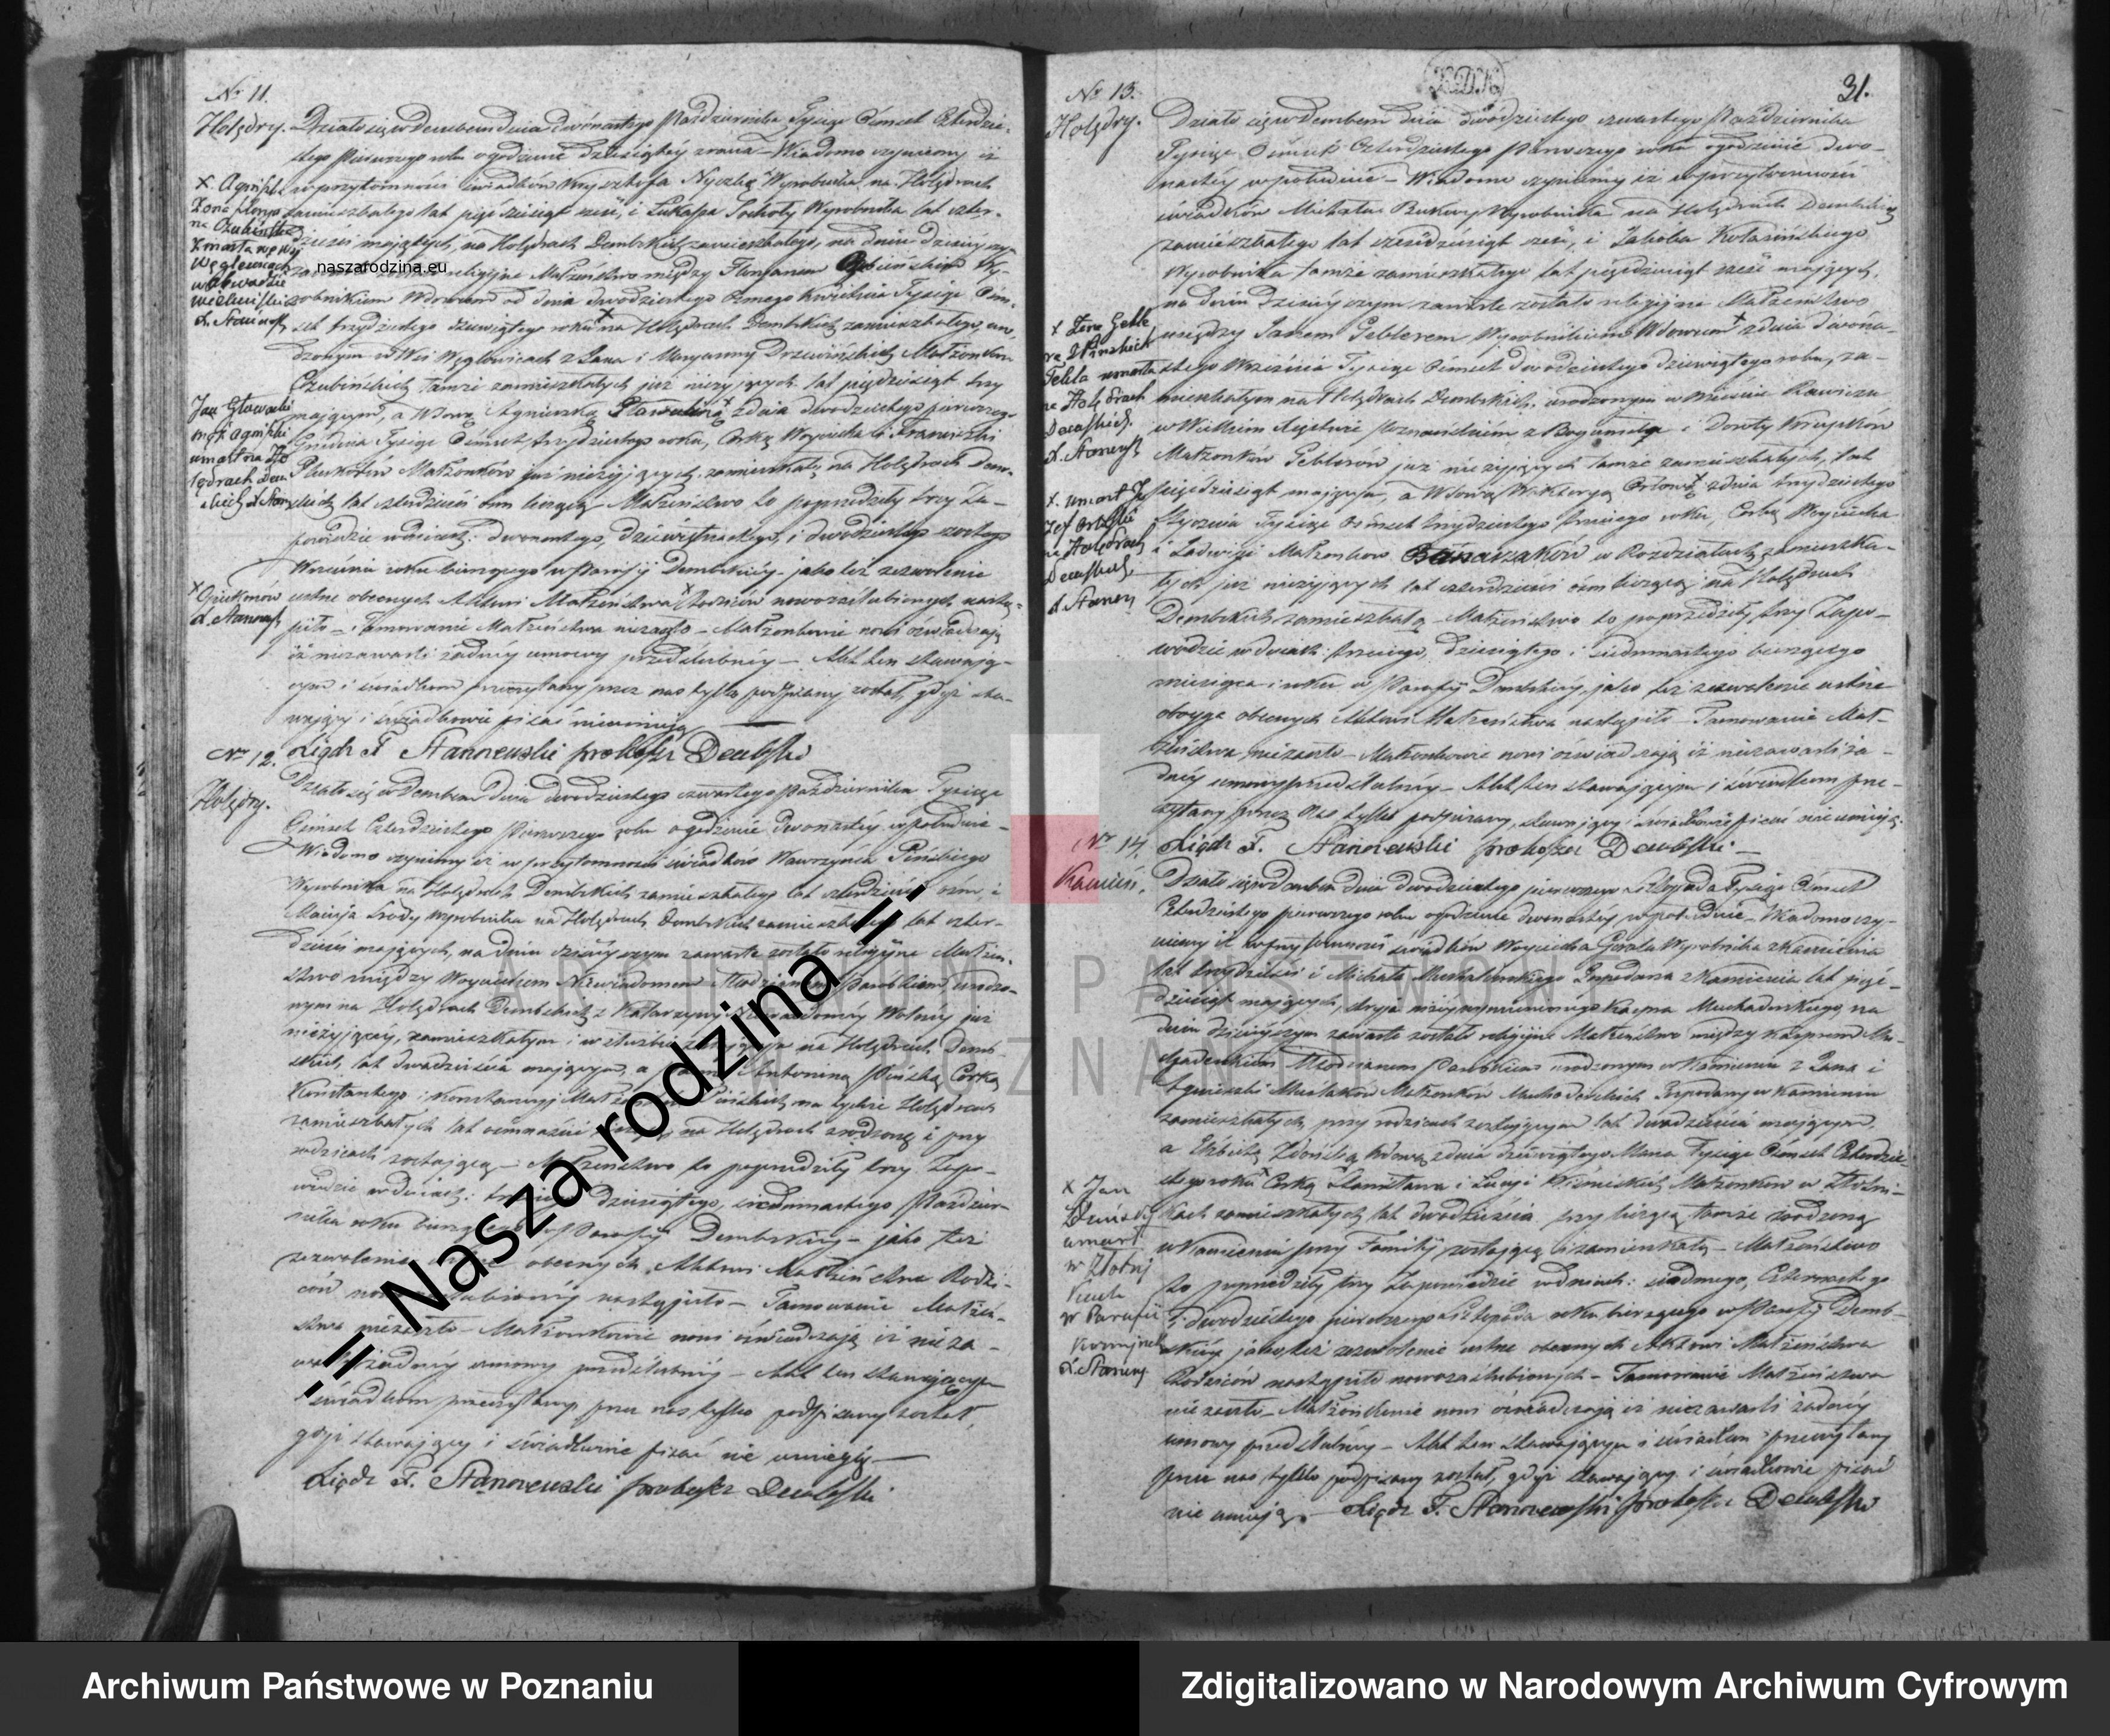 No 11.
Holędry. Działo się w Dembem dnia dwónastego Października Tysiąc Ośmset Czterdzie-
stego Pierwszego roku o godzinie dziesiątéy zrana – Wiadomo czyniemy iż
w przytomności świadków Krysztofa Wyrobnika na Holędrach
zamieszkałego lat pięćdziesiąt sześć, i Łukasza Wyrobnika lat czter-
dzieści mających, na Holędrach Dembskich zamieszkałego, na dniu dzisieyszym
religijne Małżeństwo między Floryanem Wy-
robnikiem Wdowcem od dnia dwudziestego Osmego Kwietnia Tysiąc Ośm-
set trzydziestego dziewiątego roku na Holędrach Dembskich zamieszkałego, uro-
dzonym we Wsi Węglewicach z Jana i Maryanny Małżonków
Czubińskich tamże zamieszkałych już nieżyjących lat pięćdziesiąt trzy
mającym, a Wdową Agnieszką z dnia dwudziestego pierwszego
Grudnia Tysiąc Ośmset trzydziestego roku, Córką Woyciecha i Franciszki
Małżonków już nieżyjących, zamieszkałą na Holędrach Dem-
skich lat czterdzieści ośm liczącą – Małżeństwo to poprzedziły trzy Za-
powiedzie w dniach: dwónastego, dziewiętnastego, i dwudziestego szóstego
Września roku bieżącego w Parafii Dembskiéy – jako też zezwolenie
ustne obecnych Aktowi Małżeństwa nowozaślubionych nastą-
piło – Tamowanie Małżeństwa niezaszło – Małżonkowie nowi oświadczają
iż niezawarli żadnéy umowy przedślubnéy – Akt ten stawają-
cym i świadkom przeczytany przez nas tylko podpisany został, gdyż sta-
wający i świadkowie pisać nieumieją
Xiądz F. Stanowski proboszcz Dembski
x. Agnieszka
żona Florya
na Czubińskiego
zmarła we wsi
Węglewicach
w obwodzie
wieluńskim
Jan Gławacki
mąż Agnieszki
umarł na Ho
lędrach Dem
skich
x Opiekunów
No 12.
Holędry.
Działo się w Dembem dnia dwudziestego czwartego Października Tysiąc
Ośmset Czterdziestego Pierwszego roku o godzinie dwónastéy w południe –
Wiadomo czyniemy iż w przytomności świadków Wawrzyńca Pińskiego
Wyrobnika na Holędrach Dembskich zamieszkałego lat czterdzieści ośm, i
Macieja Środy Wyrobnika na Holędrach Dembskich zamieszkałego lat czter-
dzieści mających, na dniu dzisieyszym zawarte zostało religijne Małżeń-
stwo między Woyciechem Niewiadomem Młodzianem Parobkiem, urodzo-
nym na Holędrach Dembskich z Katarzyny już
nieżyjącéy, zamieszkałym i w służbie na Holędrach Demb-
skich, lat dwadzieścia mającym, a Panną Antoniną Pińską Córką
Konstantego i Konstancyi Małżonków Pińskich na tychże Holędrach
zamieszkałych lat ośmnaście na Holędrach zrodzoną i przy
rodzicach zostającą – Małżeństwo to poprzedziły trzy Zapo-
wiedzie w dniach: dziesiątego, siedmnastego Paździer-
nika roku bieżącego w Parafii Dembskiéy – jako też
zezwolenie obecnych Aktowi Małżeństwa Rodzi-
ców nowozaślubionéy nastąpiło – Tamowanie Małżeń-
stwa niezaszło – Małżonkowie nowi oświadczają iż nieza-
warli żadnéy umowy przedślubnéy – Akt ten stawającym
i świadkom przeczytany przez nas tylko podpisany został,
gdyż stawający i świadkowie pisać nie umieją –
Xiądz F. Stanowski proboszcz Dembski
31.
No 13.
Holędry.
Działo się w Dembem dnia dwódziestego czwartego Października
Tysiąc Ośmset Czterdziestego Pierwszego roku o godzinie dwó-
nastéy w południe – Wiadomo czyniemy iż w przytomności
świadków Michała Wyrobnika na Holędrach Dembskich
zamieszkałego lat sześćdziesiąt sześć, i Jakóba Kolasińskiego
Wyrobnika tamże zamieszkałego lat pięćdziesiąt sześć mających,
na dniu Dzisieyszym zawarte zostało religijne Małżeństwo
między Janem Geblerem Wyrobnikiem Wdowcem z dnia dwóna-
stego Września Tysiąc Ośmset dwudziestego dziewiątego roku, za-
mieszkałym na Holędrach Dembskich, urodzonym w mieście Rawiczu
w Wielkim Xięstwie Poznańskiém z Bogumiła i Doroty
Małżonków Geblerów już nieżyjących tamże zamieszkałych, lat
pięćdziesiąt mającym, a Wdową Wiktoryą Orłową z dnia trzydziestego
Stycznia Tysiąc Ośmset trzydziestego trzeciego roku, Córką Woyciecha
i Jadwigi Małżonków Banaszaków w Rozdziałach zamieszka-
łych już nieżyjących lat czterdzieści ośm liczącą na Holędrach
Dembskich zamieszkałą – Małżeństwo to poprzedziły trzy Zapo-
wiedzie w dniach: trzeciego, dziesiątego i siedmnastego bieżącego
miesiąca i roku w Parafii Dembskiéy, jako też zezwolenie ustne
oboyga obecnych Aktowi Małżeństwa nastąpiło – Tamowanie Mał-
żeństwa niezaszło – Małżonkowie nowi oświadczają iż niezawarli ża-
dnéy umowy przedślubnéy – Akt ten stawającym i świadkom prze-
czytany przez Nas tylko podpisany, stawający i świadkowie pisać nie umieją.
Xiądz F. Stanowski proboszcz Dembski –
x żona Geble
ra
Tekla umarła
na Holędrach
Dembskich
x. umarł Jó
zef Orłoski
na Holędrach
Dembskich
No 14.
Kamień.
Działo się w Dembem dnia dwudziestego pierwszego Listopada Tysiąc Ośmset
Czterdziestego pierwszego roku o godzinie dwónastéy w południe – Wiadomo czy-
niemy iż w przytomności świadków Woyciecha Wyrobnika z Kamienia
lat trzydzieści i Michała Muchadowskiego Gospodarza z Kamienia lat pięć-
dziesiąt mających, stryja niżéy wymienionego Kacpra Muchadowskiego, na
dniu dzisieyszym zawarte zostało religijne Małżeństwo między Kacprem Mu-
chadowskim Młodzianem Parobkiem urodzonym w Kamieniu z Jana i
Agnieszki Małżonków Muchadowskich Gospodarzy w Kamieniu
zamieszkałych, przy rodzicach zostającym lat dwadzieścia mającym,
a Elżbietą Zdońską Wdową z dnia dziewiątego Marca Tysiąc Ośmset Czterdzie-
stego roku Córką Stanisława i Łucyi Małżonków w Złotni-
kach zamieszkałych, lat dwadzieścia trzy liczącą tamże zrodzoną
w Kamieniu przy Familii zostającą i zamieszkałą – Małżeństwo
to poprzedziły trzy Zapowiedzie w dniach: siódmego, Czternastego
i dwudziestego pierwszego Listopada roku bieżącego w Parafii Demb-
skiéy jako też zezwolenie ustne obecnych Aktowi Małżeństwa
Rodziców nastąpiło nowozaślubionych – Tamowanie Małżeństwa
niezaszło – Małżonkowie nowi oświadczają iż niezawarli żadnéy
umowy przedślubnéy – Akt ten stawającym i świadkom przeczytany
przez nas tylko podpisany został, gdyż stawający i świadkowie pisać
nie umieją. – Xiądz F. Stanowski proboszcz Dembski
x Jan
Zdoński
umarł
w Złotni
kach
w Parafii
naszarodzina.eu
-=| Nasza rodzina |=-
ARCHIWUM PAŃSTWOWE
W POZNANIU
Archiwum Państwowe w Poznaniu
Zdigitalizowano w Narodowym Archiwum Cyfrowym